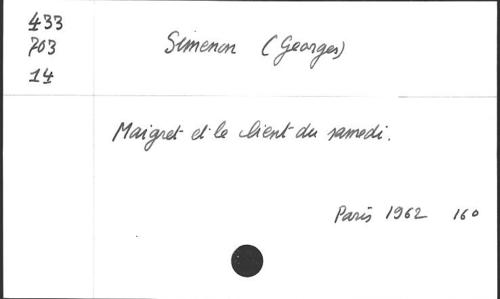 433
703
14
Simenon (Georges)
Maigret et le client du samedi.
Paris 1962 160